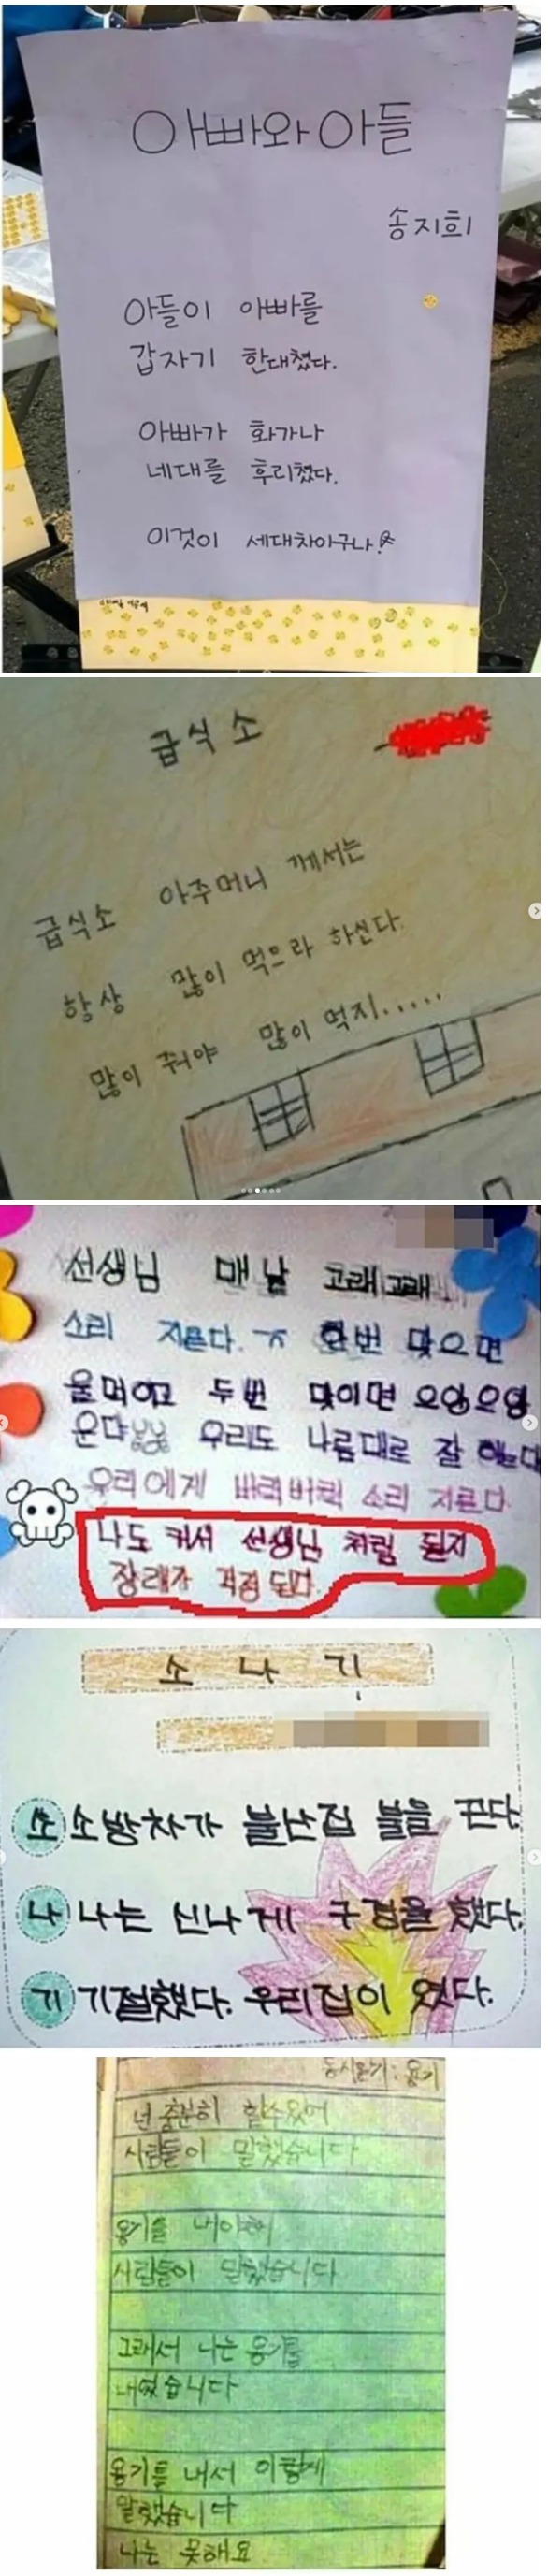 아빠와 아들
송지희
아들이 아빠를
갑자기 한대쳤다.
아빠가 화가나
네대를 후리쳤다.
이것이 세대차이구나!
급식소
급식소 아주머니 께서는
항상 많이 먹으라 하신다.
많이 줘야 많이 먹지.....
선생님 매날 고래고래
소리 지른다. ㅠ 한번 맞으면
울먹이고 두번 맞이면 으앙으앙
운다 우리도 나름대로 잘 하는데
우리에게 버럭버럭 소리 지른다
나도 커서 선생님 처럼 될지
장래가 걱정 된다.
소 나 기
소 소방차가 불난집 불을 끈다.
나 나는 신나게 구경을 했다.
기 기절했다. 우리집이 었다.
동시짓기 : 용기
넌 충분히 할수있어
사람들이 말했습니다
용기를 내야해
사람들이 말했습니다
그래서 나는 용기를
내었습니다
용기를 내서 이렇게
말했습니다
나는 못해요